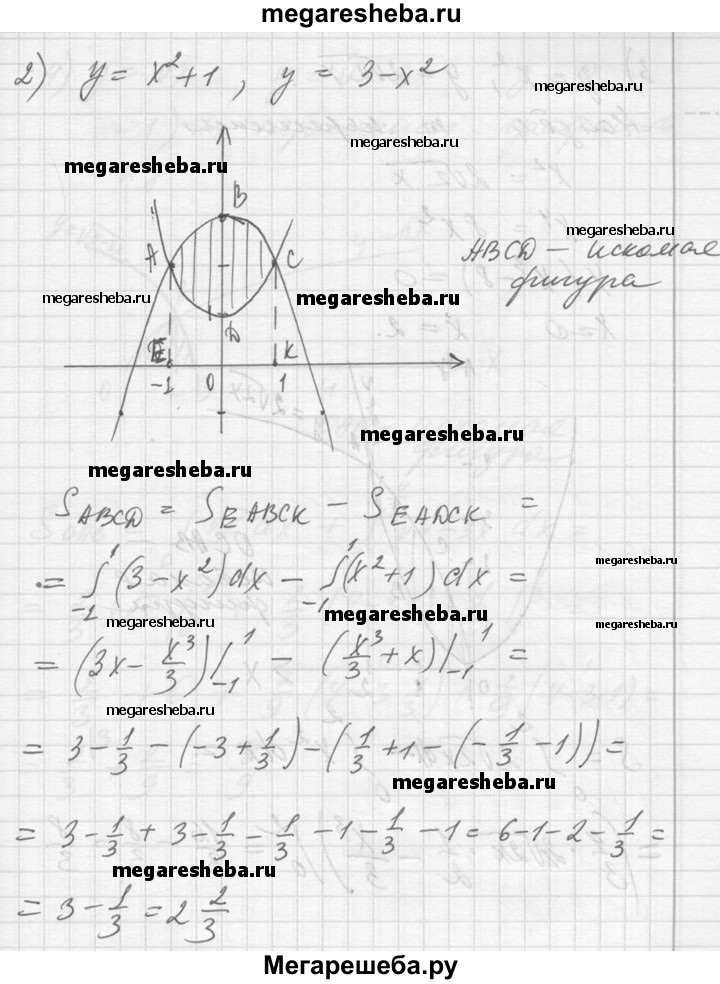 megaresheba.ru
2) y = x²+1 , y = 3-x²
megaresheba.ru
megaresheba.ru
megaresheba.ru
B
megaresheba.ru
A C
ABCD — искомая
фигура
megaresheba.ru
megaresheba.ru
D
E K
-1 0 1
megaresheba.ru
megaresheba.ru
S_ABCD = S_EABCK - S_EADCK =
megaresheba.ru
= ∫_{-1}^{1} (3-x²)dx - ∫_{-1}^{1} (x²+1)dx =
megaresheba.ru
megaresheba.ru
megaresheba.ru
= (3x - x³/3)|_{-1}^{1} - (x³/3 + x)|_{-1}^{1} =
megaresheba.ru
= 3 - 1/3 - (-3 + 1/3) - (1/3 + 1 - (-1/3 - 1)) =
megaresheba.ru
= 3 - 1/3 + 3 - 1/3 - 1/3 - 1 - 1/3 - 1 = 6-1-2-1/3 =
megaresheba.ru
= 3 - 1/3 = 2 2/3
Мегарешеба.ру